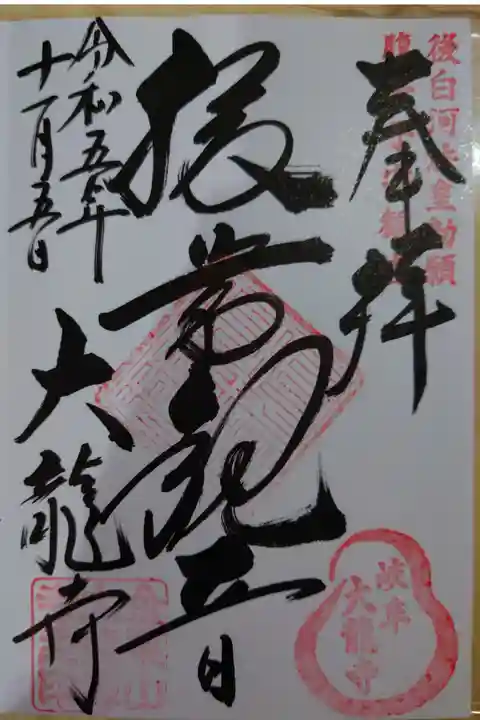 後白河法皇勅願
奉拝
腹帯観音
大龍寺
令和五年
十一月五日
岐阜
大龍寺